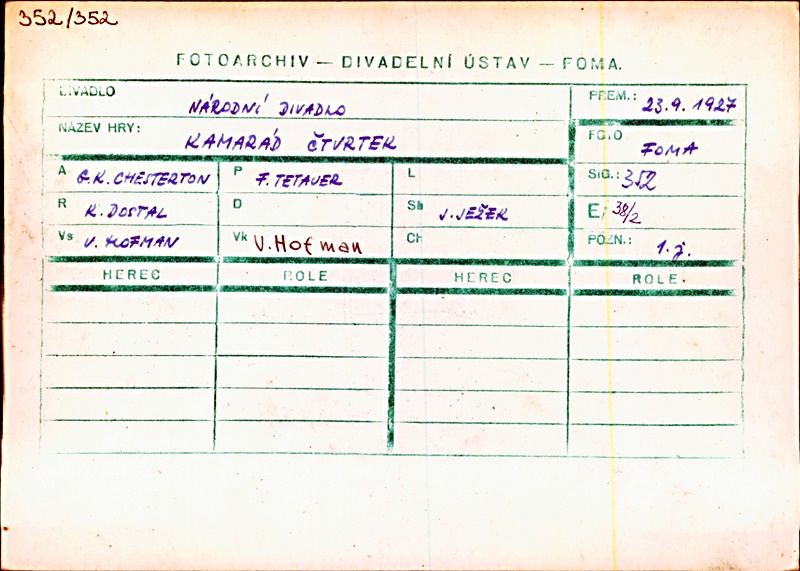 352/352
FOTOARCHIV — DIVADELNÍ ÚSTAV — FOMA.
DIVADLO NÁRODNÍ DIVADLO PREM.: 23.9.1927
NÁZEV HRY: KAMARÁD ČTVRTEK FOTO FOMA
A G.K. CHESTERTON P F. TETAUER L SIG.: 352
R K. DOSTAL D Sh J. JEŽEK E; 38/2
Vs V. HOFMAN Vk V. Hofman Ch POZN.: 1.j.
HEREC ROLE HEREC ROLE.